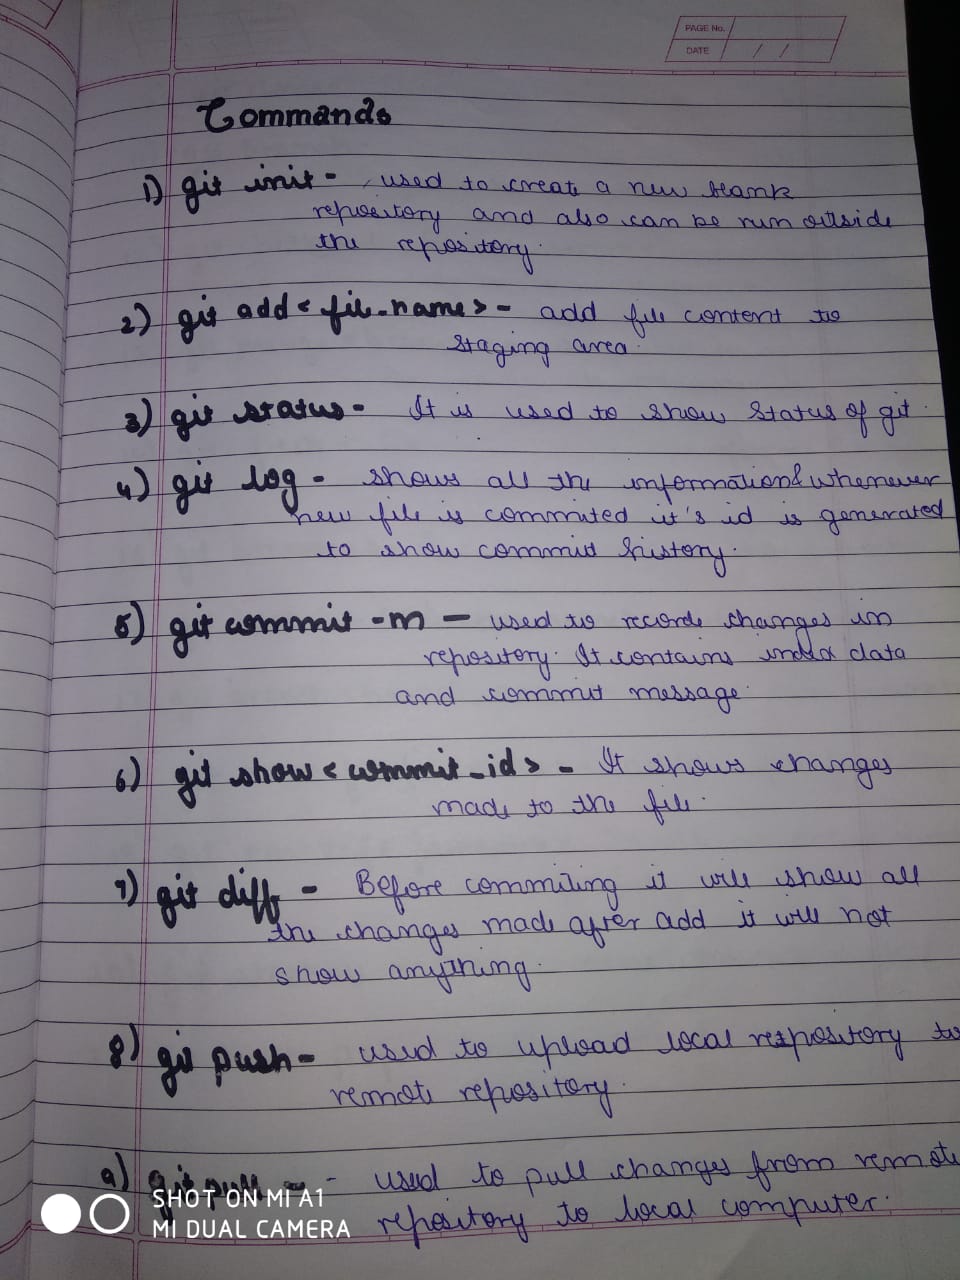 PAGE No.
DATE / /
Commands
1) git init - used to create a new blank
repository and also can be run outside
the repository.
2) git add < file_name > - add file content to
staging area.
3) git status - It is used to show status of git.
4) git log - shows all the information & whenever
new file is commited it's id is generated
to show commit history.
5) git commit -m - used to records changes in
repository. It contains index data
and commit message.
6) git show < commit_id > - It shows changes
made to the file.
7) git diff - Before commiting it will show all
the changes made after add it will not
show anything.
8) git push - used to upload local repository to
remote repository.
9) git pull - used to pull changes from remote
repository to local computer.
SHOT ON MI A1
MI DUAL CAMERA